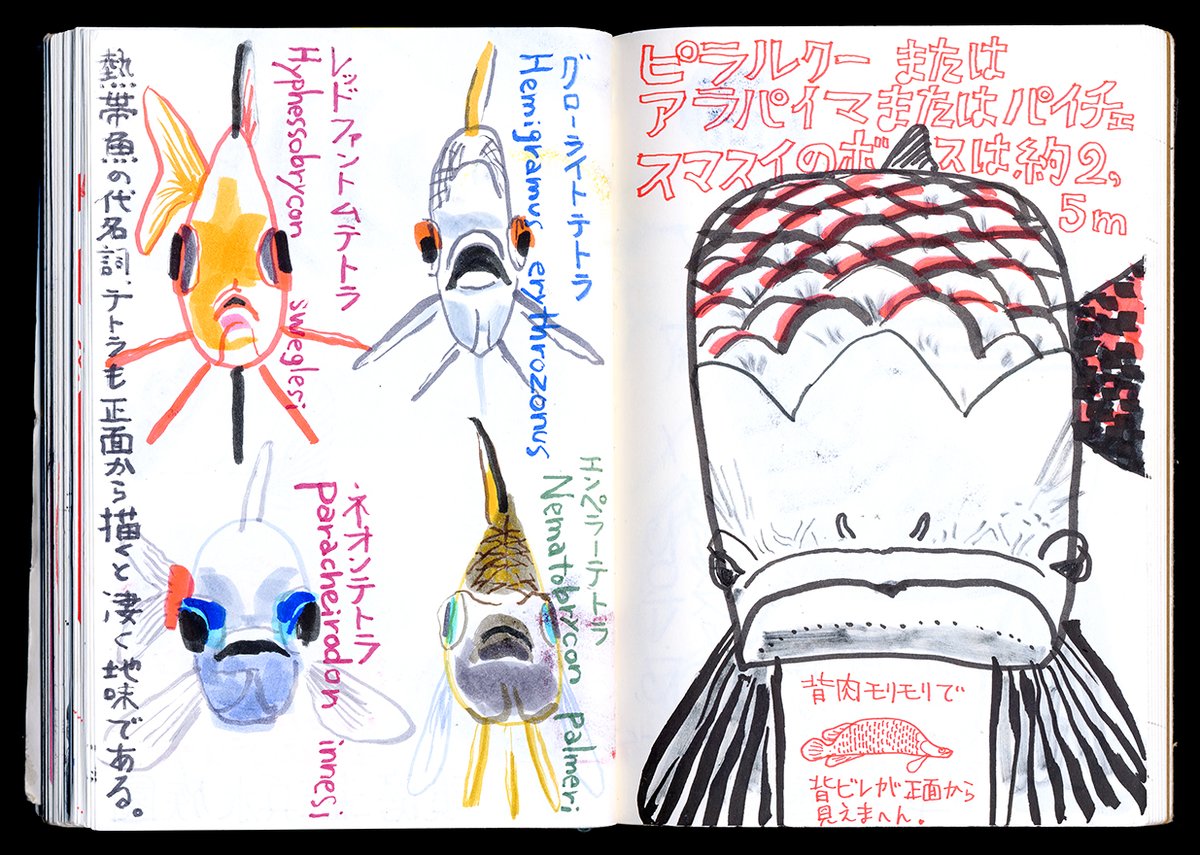 熱帯魚の代名詞、テトラも正面から描くと凄く地味である。
レッドファントムテトラ
Hyphessobrycon sweglesi
グローライトテトラ
Hemigramus erythrozonus
ネオンテトラ
paracheirodon innesi
エンペラーテトラ
Nematobrycon palmeri
ピラルクー または
アラパイマまたはパイチェ
スマスイのボスは約2,
5m
背肉モリモリで
背ビレが正面から
見えまへん。